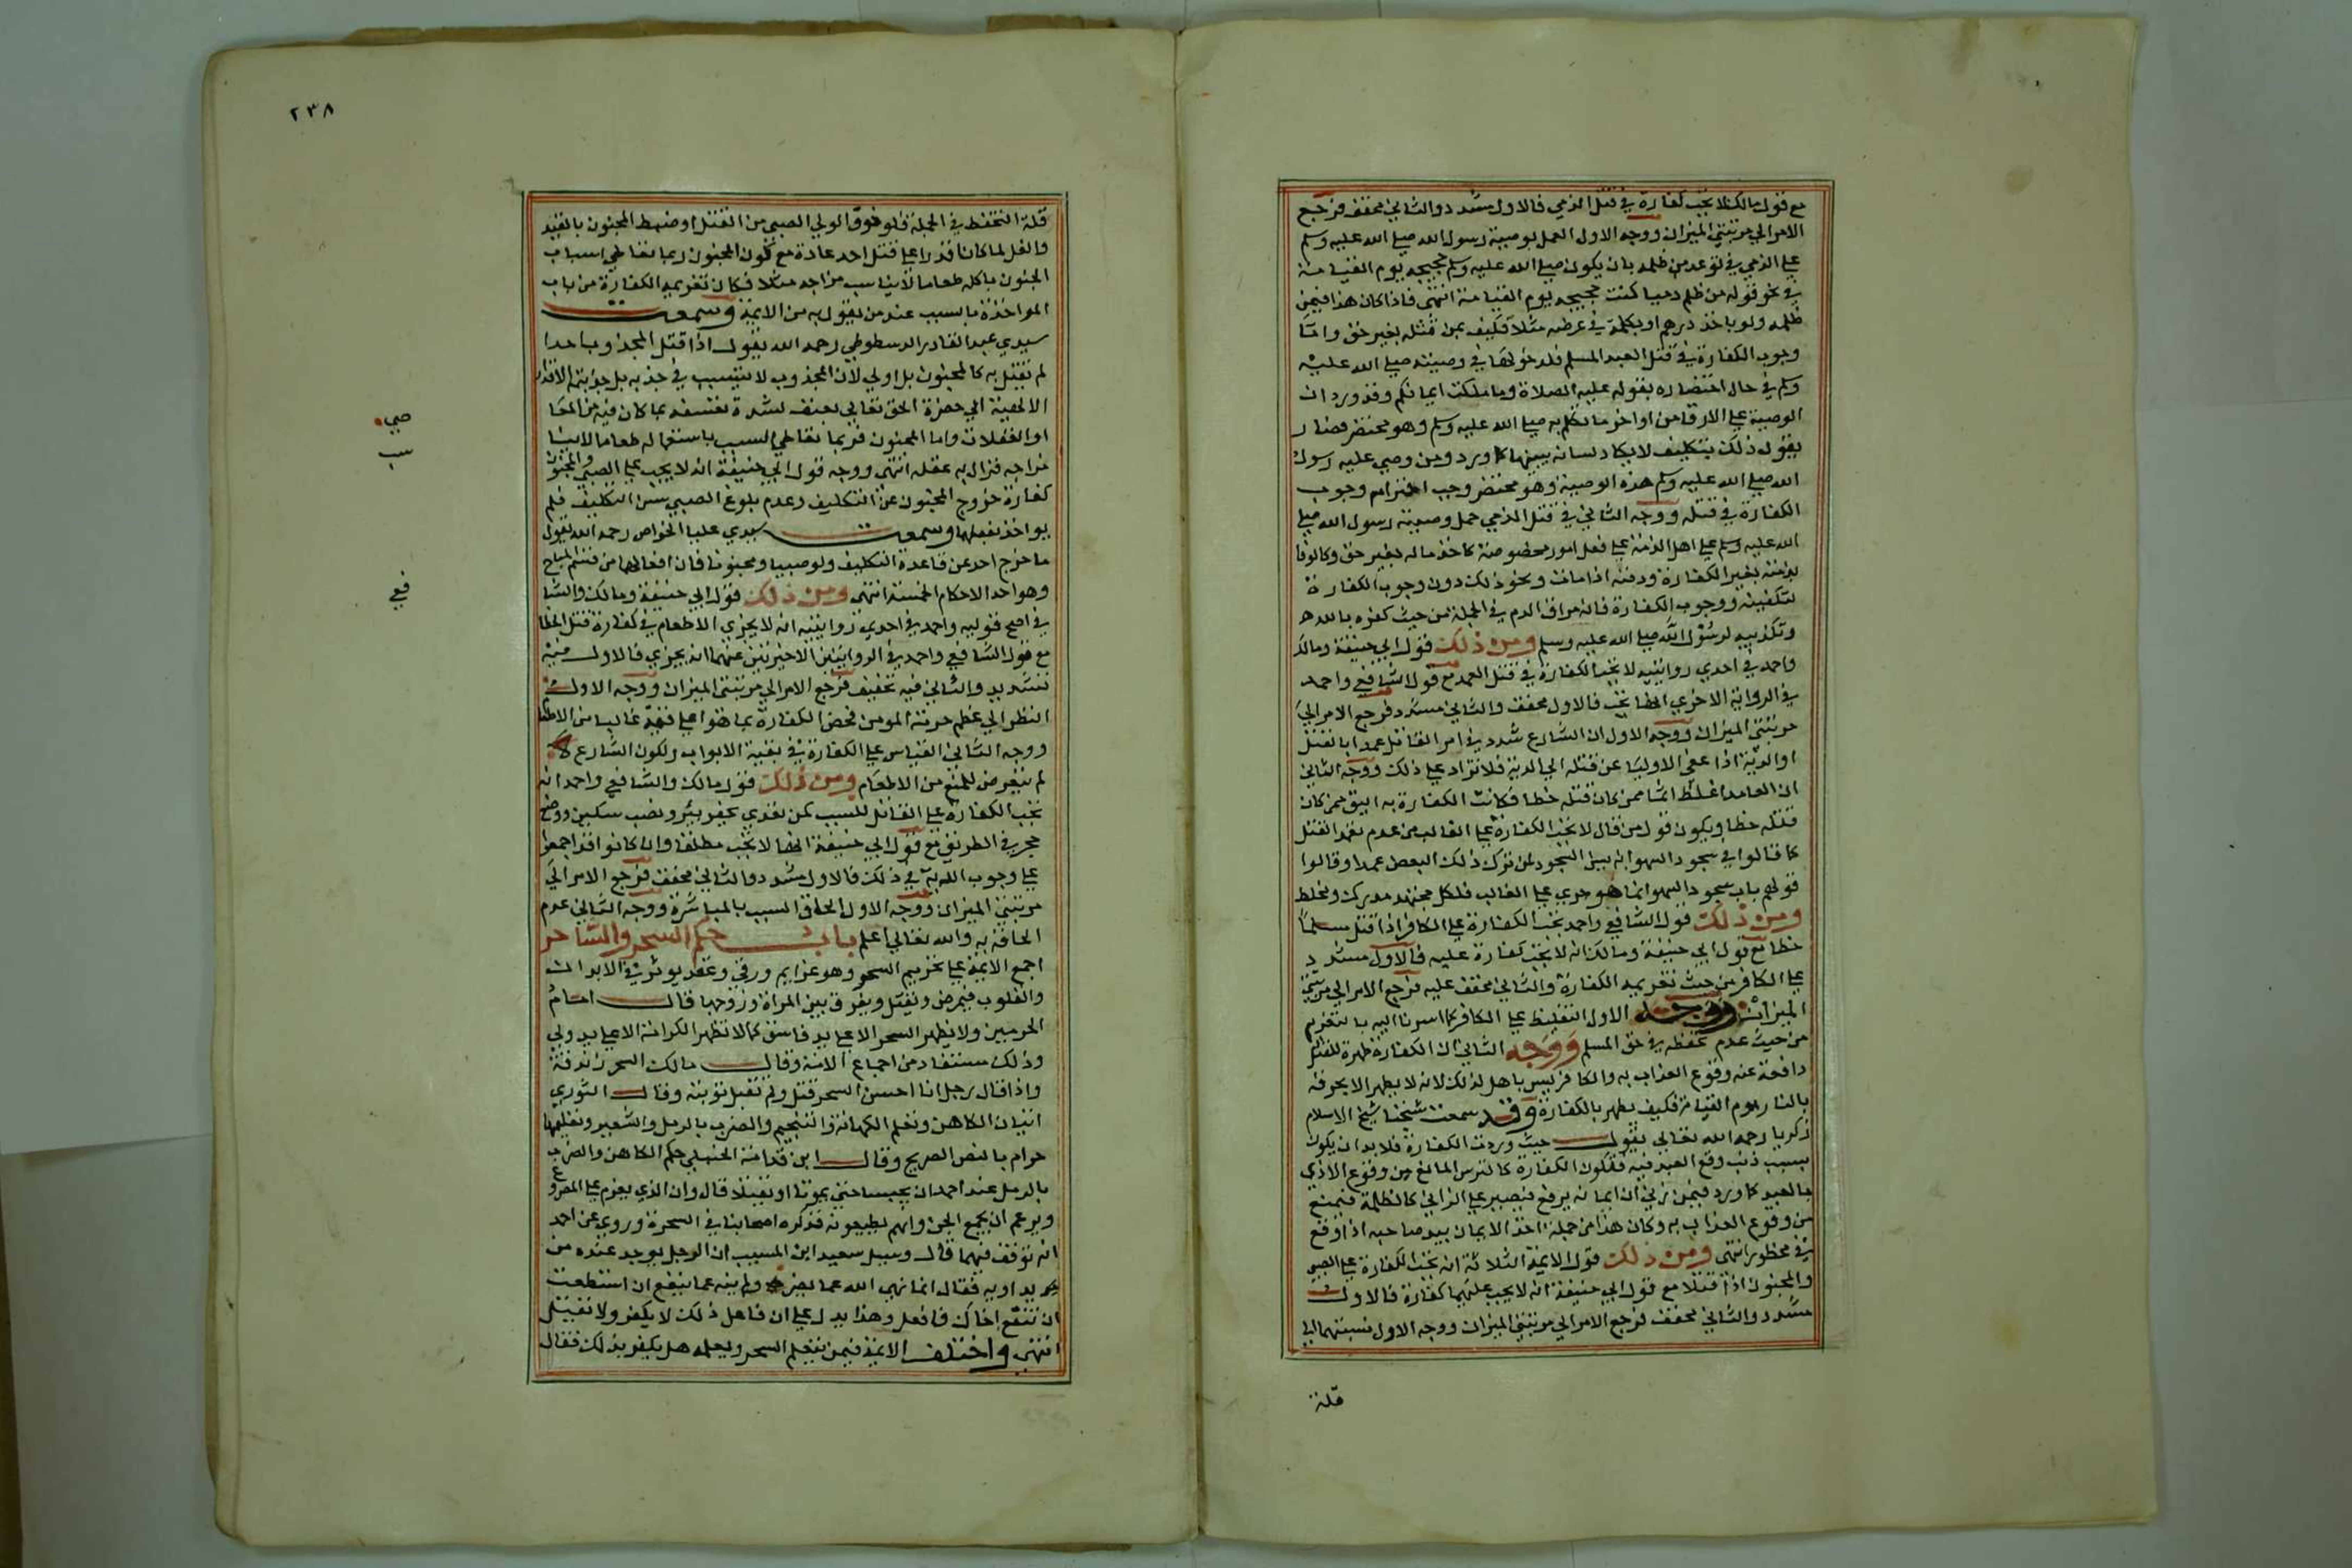 مع قول مالك لا تجب كفارة في قتل الذمي فالاول مشدد والثاني مخفف فرجع
الامر الي مرتبتي الميزان ووجه الاول العمل بوصية رسول الله صلي الله عليه وسلم
علي الذمي في توعد من ظلمه بان يكون صلي الله عليه وسلم حجيجه يوم القيامة
في نحو قوله من ظلم ذميا كنت حجيجه يوم القيامة انتهى فاذا كان هذا فيمن
ظلمه ولو باخذ درهم او بكلمة في عرضه مثلا فكيف بمن قتله بغير حق واما
وجوب الكفارة في قتل العبد المسلم فلدخولها في وصيته صلي الله عليه
وسلم في حال احتضاره بقوله عليه الصلاة وما ملكت ايمانكم وقد ورد ان
الوصية علي الارقا من اواخر ما تكلم به صلي الله عليه وسلم وهو محتضر فصار
يقول ذلك بتكليف لا يكاد لسانه يبينها كما ورد ومن وصي عليه رسول
الله صلي الله عليه وسلم هذه الوصية وهو محتضر وجب احترامه وجوب
الكفارة في قتله ووجه الثاني في قتل الذمي حمل وصية رسول الله صلي
الله عليه وسلم علي اهل الذمة علي فعل امور مخصوصة كاخذ ماله بغير حق وكالوفا
بذمته بغير الكفارة ودفنه اذا مات ونحو ذلك دون وجوب الكفارة
لتكفينه ووجوب الكفارة فانه مراق الدم في الجملة من حيث كفره بالله
وتكذيبه لرسول الله صلي الله عليه وسلم ومن ذلك قول ابي حنيفة ومالك
واحمد في احدي روايتيه لا تجب الكفارة في قتل العمد مع قول الشافعي واحمد
في الرواية الاخري انها تجب فالاول مخفف والثاني مشدد فرجع الامر الي
مرتبتي الميزان ووجه الاول ان الشارع شدد في امر القاتل عمدا بالقتل
او الدية اذا عفي الاوليا عن قتله الي الدية فلا تزاد علي ذلك ووجه الثاني
ان العامد اغلظ اثما ممن كان قتله خطا فكانت الكفارة به اليق ممن كان
قتله خطا ويكون قول من قال لا تجب الكفارة علي الغالب من عدم تعمد القتل
كما قالوا في سجود السهو انه يسن السجود لمن ترك ذلك البعض عمدا وقالوا
قولهم باب سجود السهو انما هو جري علي الغالب فلكل مجتهد مدرك وملحظ
ومن ذلك قول الشافعي واحمد تجب الكفارة علي الكافر اذا قتل مسلما
خطا مع قول ابي حنيفة ومالك انه لا تجب كفارة عليه فالاول مشدد
علي الكافر من حيث تغريمه الكفارة والثاني مخفف عليه فرجع الامر الي مرتبتي
الميزان ووجه الاول التغليظ علي الكافر كما اسرنا اليه بالتغريم
من حيث عدم تحفظه في حق المسلم ووجه الثاني ان الكفارة طهرة للقاتل
دافعة عنه وقوع العذاب به والكافر ليس باهل لذلك لانه لا يطهر الا بحرقه
بالنار يوم القيامة فكيف يطهر بالكفارة وقد سمعت شيخنا شيخ الاسلام
زكريا رحمه الله تعالي يقول حيث وردت الكفارة فلا بد ان يكون
بسبب ذنب وقع العبد فيه فتكون الكفارة كالترس المانع من وقوع الاذي
بالعبد كما ورد فيمن زني ان ايمانه يرفع فيصير علي الزاني كالظلة فيمنع
من وقوع العذاب به وكان هذا من جملة اخذ الايمان بيد صاحبه اذا وقع
في محظور انتهى ومن ذلك قول الايمة الثلاثة انه تجب الكفارة علي الصبي
والمجنون اذا قتلا مع قول ابي حنيفة انه لا يجب عليهما كفارة فالاول
مشدد والثاني مخفف فرجع الامر الي مرتبتي الميزان ووجه الاول نسبتهما الي
قلة
٢٣٨
قلة التحفظ في الجملة فلو خوف الولي الصبي من القتل او ضبط المجنون بالقيد
والغل لما كانا قدرا علي قتل احد عادة مع كون المجنون ربما تعاطي اسباب
الجنون باكله طعاما لا يناسب مزاجه مثلا فكان تغريمه الكفارة من باب
المواخذة بالسبب عند من يقول به من الايمة وسمعت
سيدي عبد القادر الدسطوطي رحمه الله يقول اذا قتل المجذوب احدا
لم نقتل به كالمجنون بل اولي لان المجذوب لا يتسبب في جذبه بل جذبته الاقدار
الالهية الي حضرة الحق تعالي بعنف لشدة تعشقه بما كان فيه من المعا
او الغفلات واما المجنون فربما تعاطي السبب باستعماله طعاما لا ينا
صي
سب
مزاجه فزال به عقله انتهى ووجه قول ابي حنيفة انه لا يجب علي الصبي والمجنون
كفارة خروج المجنون عن التكليف وعدم بلوغ الصبي سن التكليف فلم
يواخذ بفعلهما وسمعت سيدي عليا الخواص رحمه الله يقول
ما خرج احد عن قاعدة التكليف ولو صبيا ومجنونا فان افعالهما من قسم المباح
وهو احد الاحكام الخمسة انتهى ومن ذلك قول ابي حنيفة ومالك والشا
فعي
في اصح قوليه واحمد في احدي روايتيه انه لا يجزي الاطعام في كفارة قتل الخطا
مع قول الشافعي واحمد في الروايتين الاخيرتين عنهما انه يجزي فالاول فيه
تشديد والثاني فيه تخفيف فرجع الامر الي مرتبتي الميزان ووجه الاول
النظر الي عظم حرمة المومن فخص الكفارة بما هو اعلي قيمة غالبا من الاطعام
ووجه الثاني القياس علي الكفارة في بقية الابواب ولكون الشارع
لم يتعرض للمنع من الاطعام ومن ذلك قول مالك والشافعي واحمد انه
تجب الكفارة علي القاتل للسبب كمن تعدي بحفر بئر ونصب سكين ووضع
حجر في الطريق مع قول ابي حنيفة انها لا تجب مطلقا وان كانوا قد اجمعوا
علي وجوب الدية في ذلك فالاول مشدد والثاني مخفف فرجع الامر الي
مرتبتي الميزان ووجه الاول الحاق السبب بالمباشرة ووجه الثاني عدم
الحاقه به والله تعالي اعلم باب حكم السحر والساحر
اجمع الايمة علي تحريم السحر وهو عزايم ورقي وعقد يوثر في الابدان
والقلوب فيمرض ويقتل ويفرق بين المراة وزوجها قال امام
الحرمين ولا يظهر السحر الا علي يد فاسق كما لا تظهر الكرامة الا علي يد ولي
وذلك مستفاد من اجماع الامة وقال مالك السحر زندقة
واذا قال رجل انا احسن السحر قتل ولم تقبل توبته وقال النووي
اتيان الكاهن وتعلم الكهانة والتنجيم والضرب بالرمل والشعير وتعليمها
حرام بالنص الصريح وقال ابن قدامة الحنبلي حكم الكاهن والضرب
بالرمل عند احمد ان يحبسا حتي يموتا او يقتلا قال وان الذي يعزم علي المصروع
ويزعم ان يجمع الجن وانهم يطيعونه فذكره اصحابنا في السحرة وروي عن احمد
انه توقف فيهما قال وسيل سعيد ابن المسيب ان الرجل يوجد عنده من
يداويه فقال انما نهي الله عما يضر ولم ينه عما ينفع ان استطعت
ان تنفع اخاك فافعل وهذا يدل علي ان فاعل ذلك لا يكفر ولا يقتل
انتهى واختلف الايمة فيمن يتعلم السحر ويعلمه هل يكفر بذلك فقال